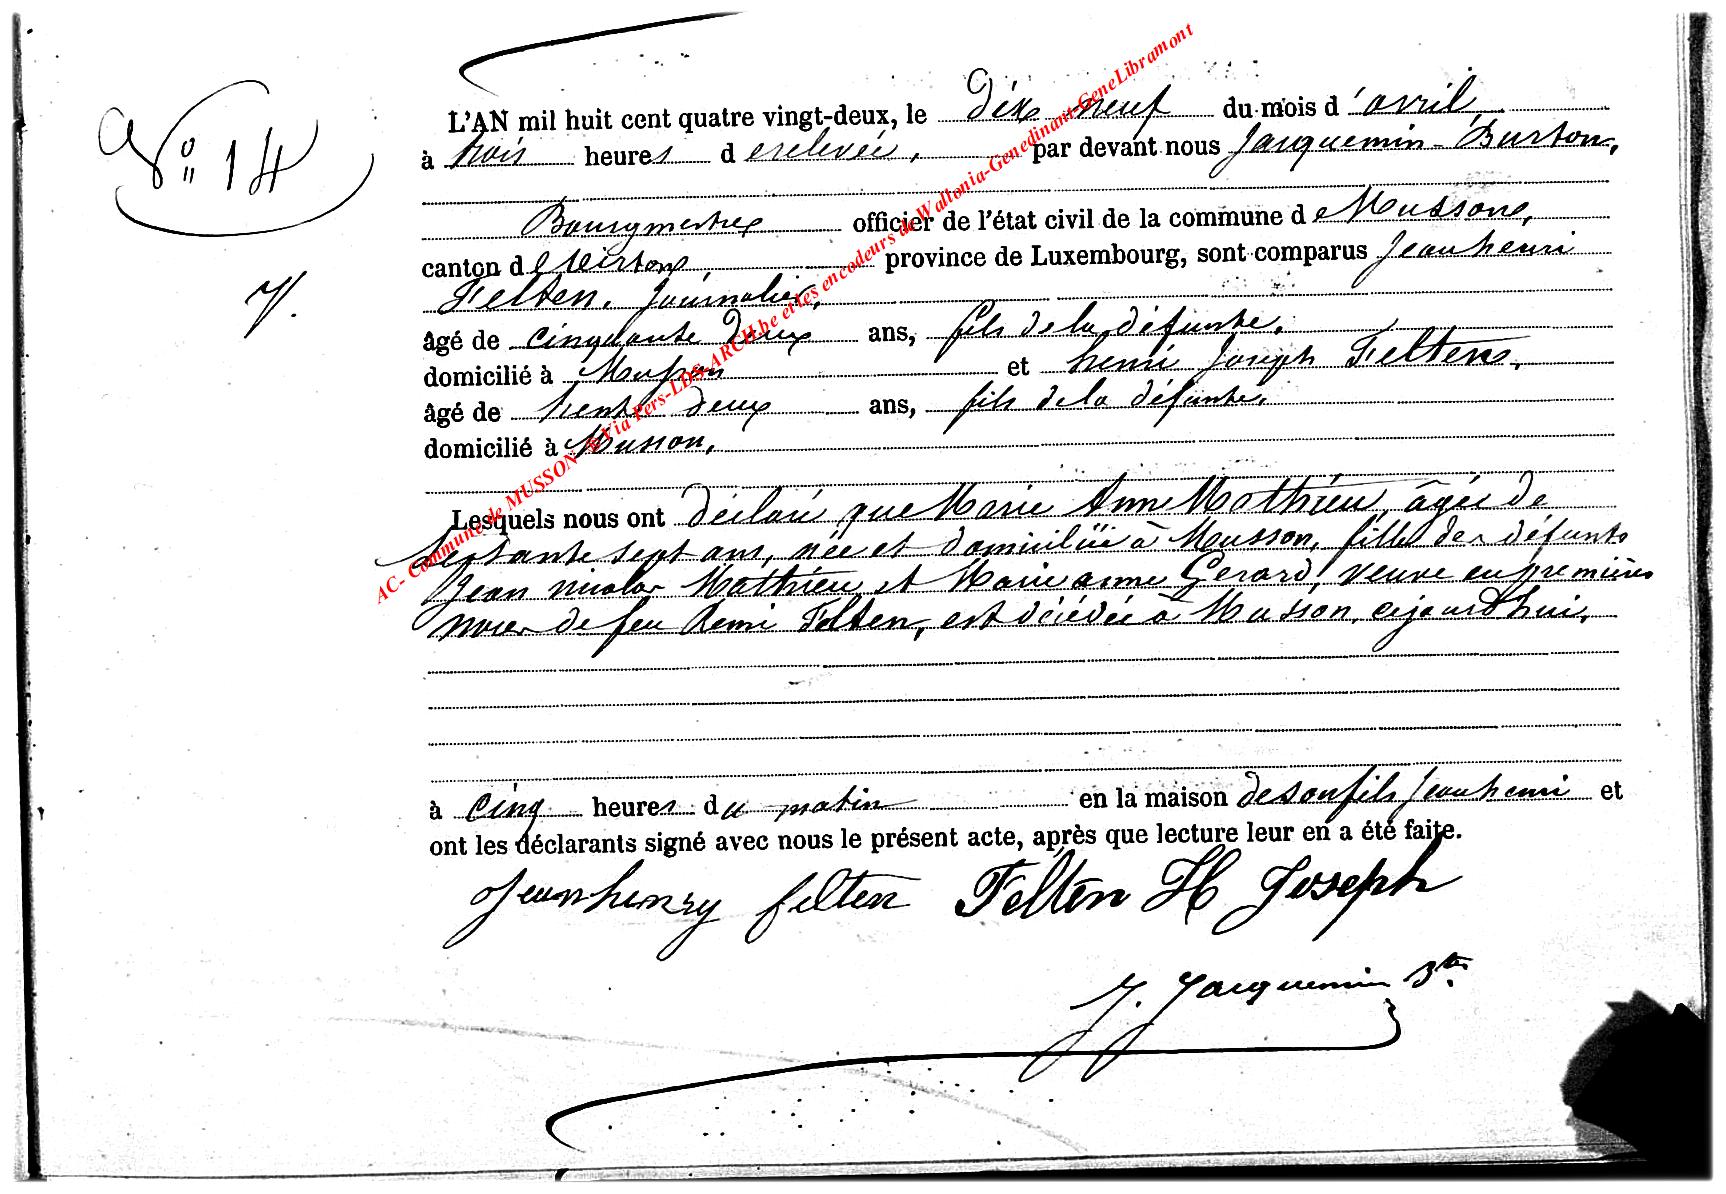 N° 14
L'AN mil huit cent quatre vingt-deux, le dix neuf du mois d'avril,
à trois heures de relevée, par devant nous Jacquemin-Burton,
Bourgmestre officier de l'état civil de la commune de Musson,
canton de Virton, province de Luxembourg, sont comparus Jean henri
Felten, journalier,
âgé de cinquante deux ans, fils de la défunte,
domicilié à Musson et henri Joseph Felten,
âgé de trente deux ans, fils de la défunte,
domicilié à Musson,
Lesquels nous ont déclaré que Marie Ann Mathieu, âgée de
septante sept ans, née et domiciliée à Musson, fille des défunts
Jean nicolas Mathieu et Marie anne Gerard, veuve en premières
noces de feu Remi Felten, est décédée à Musson, cejourd'hui,
à cinq heures du matin en la maison de son fils Jean henri et
ont les déclarants signé avec nous le présent acte, après que lecture leur en a été faite.
Jean henry felten Felten H Joseph
J. Jacquemin B.
AC- Commune de MUSSON - Via Fers-LDS-ARCH.be et les encodeurs de Wallonia-Genedinant-GeneLibramont